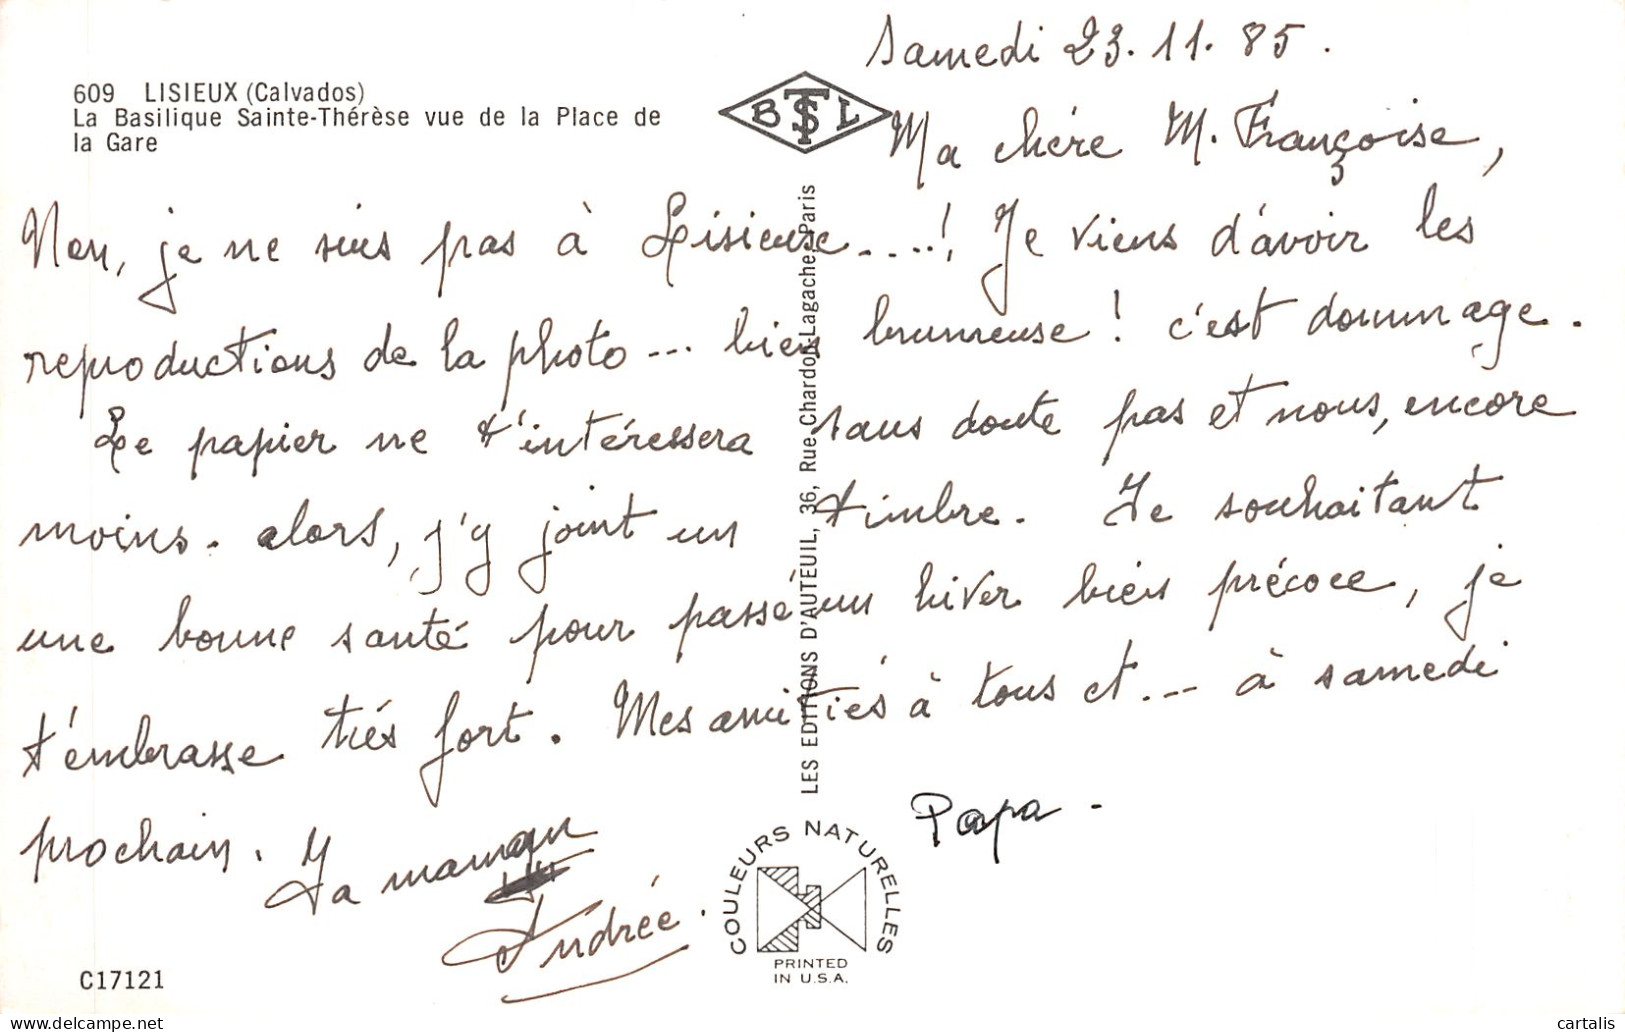 Samedi 23.11.85.
609 LISIEUX (Calvados)
La Basilique Sainte-Thérèse vue de la Place de
la Gare
B T S L
Ma chère M. Françoise,
Non, je ne suis pas à Lisieuse....! Je viens d'avoir les
reproductions de la photo... bien brumeuse! c'est dommage.
Le papier ne t'intéressera sans doute pas et nous, encore
moins. alors, j'y joint un timbre. Te souhaitant
une bonne santé pour passé un hiver bien précoce, je
t'embrasse très fort. Mes amitiés à tous et... à samedi
prochain. Ta maman
Andrée.
Papa.
LES EDITIONS D'AUTEUIL, 36, Rue Chardon-Lagache, Paris
COULEURS NATURELLES
PRINTED
IN U.S.A.
C17121
delcampe.net
cartalis